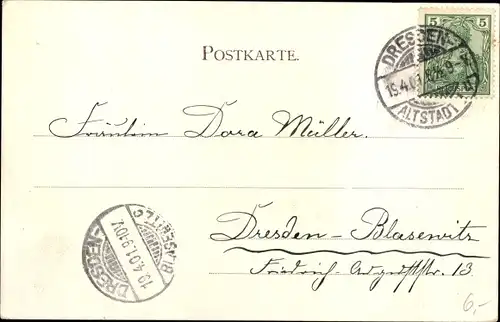 5 5
DRESDEN-
19.4.01. 8-9
ALTSTADT
POSTKARTE.
Fräulein Dora Müller.
DRESDEN-
BLASEWITZ
19.4.01. 9-10V.
Dresden-Blasewitz
Friedrich-Auguststr. 13.
6,-